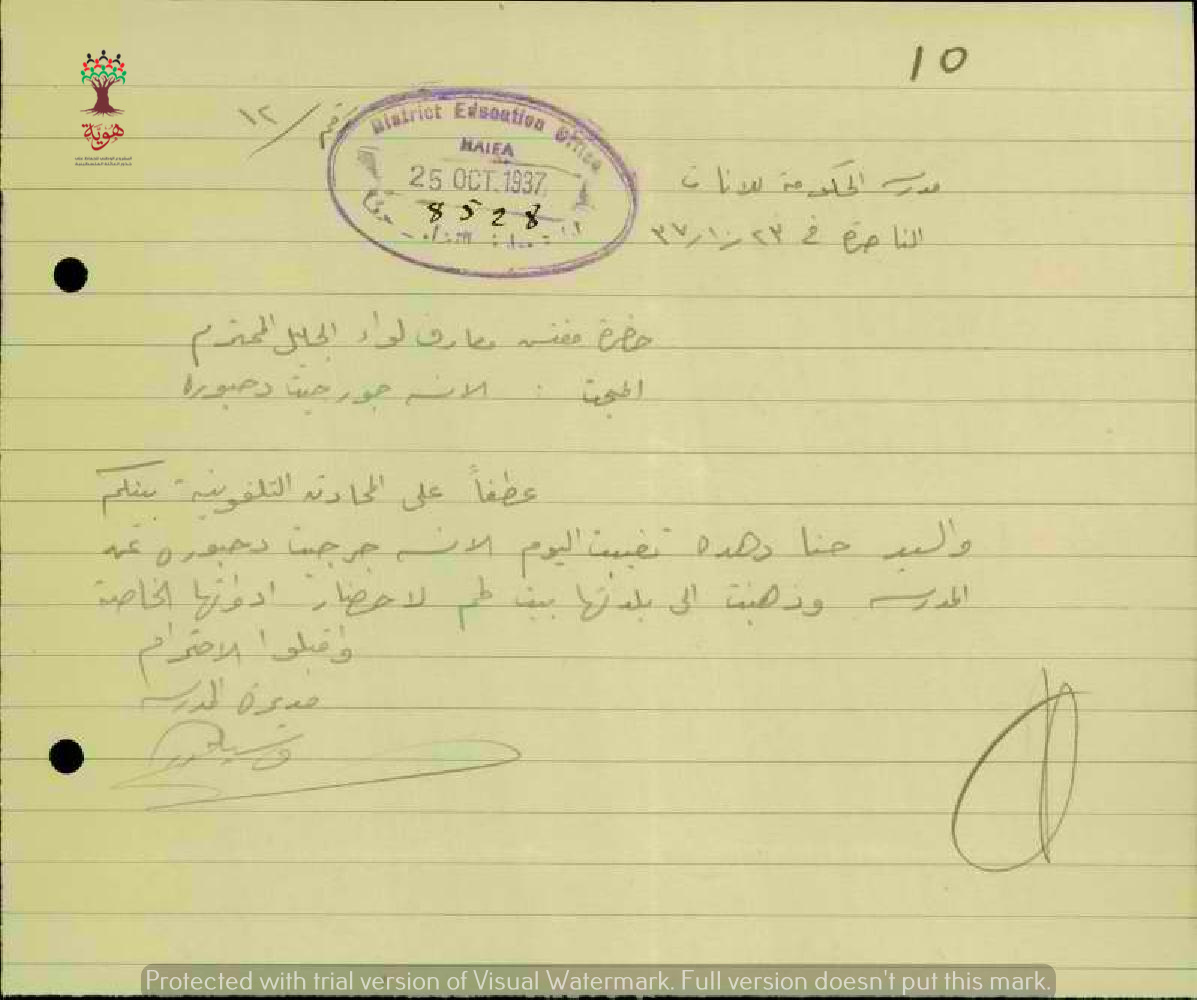 10
هوية
نمرة / ١٢
District Education Office
HAIFA
25 OCT. 1937
8528
مدرسة الحكومة للاناث
الناصرة في ٢٣/١٠/٣٧
حضرة مفتش معارف لواء الجليل المحترم
المبحث : الانسه جورجيت دحبورة
عطفاً على المحادثه التلفونية بينكم
والسيد حنا دهده تغيبت اليوم الانسه جرجيت دحبوره عن
المدرسه وذهبت الى بلدتها بيت لحم لاحضار ادواتها الخاصة
واقبلوا الاحترام
مديرة المدرسه
Protected with trial version of Visual Watermark. Full version doesn't put this mark.